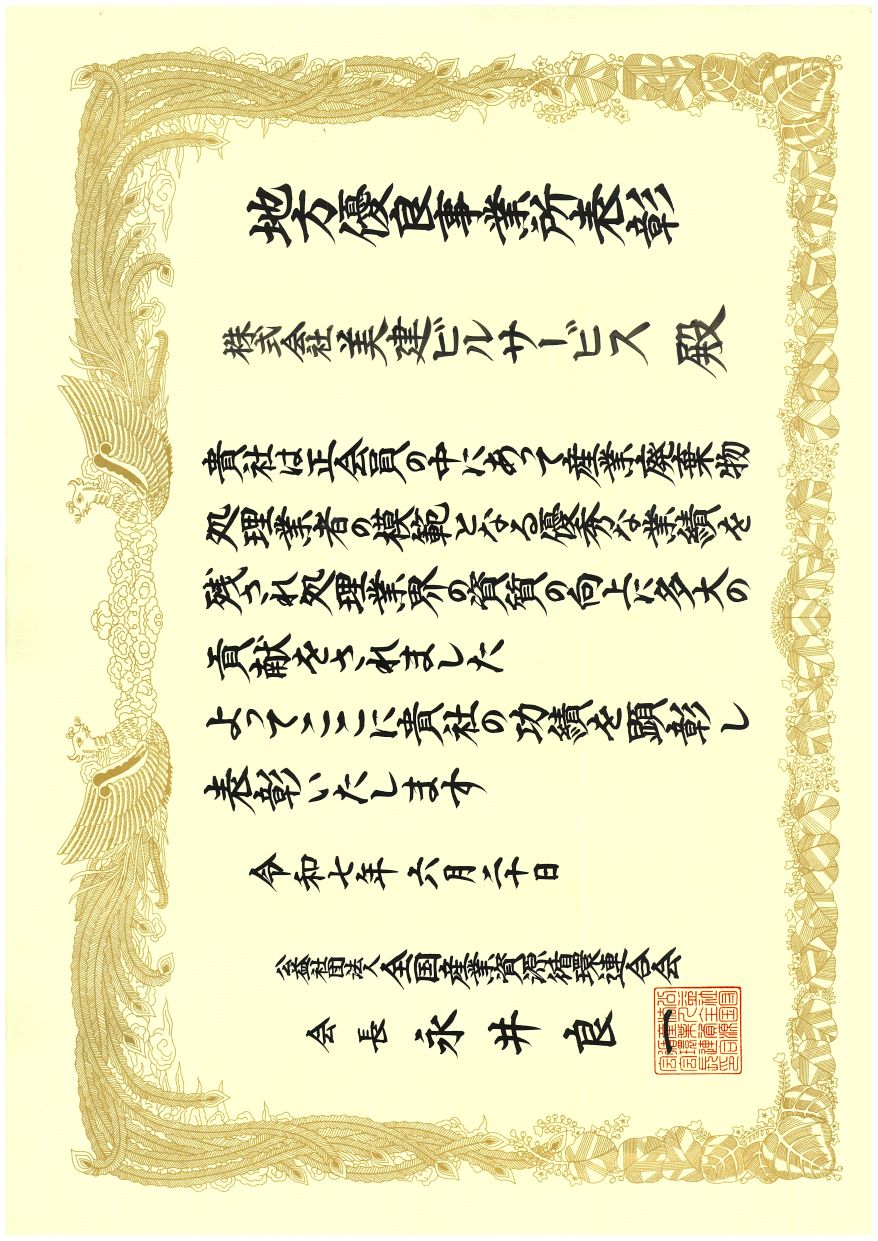 地方優良事業所表彰
株式会社美建ビルサービス 殿
貴社は正会員の中にあって産業廃棄物
処理業者の模範となる優秀な業績を
残され処理業界の資質の向上に多大の
貢献をされました
よってここに貴社の功績を顕彰し
表彰いたします
令和七年六月二十日
公益社団法人全国産業資源循環連合会
会長 永井良一